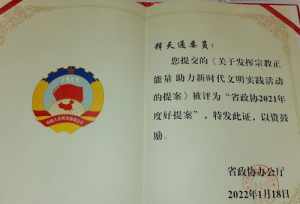 释天通委员:
您提交的《关于发挥宗教正
能量 助力新时代文明实践活动
的提案》被评为“省政协2021年
度好提案”，特发此证，以资鼓
励。
省政协办公厅
2022年1月18日